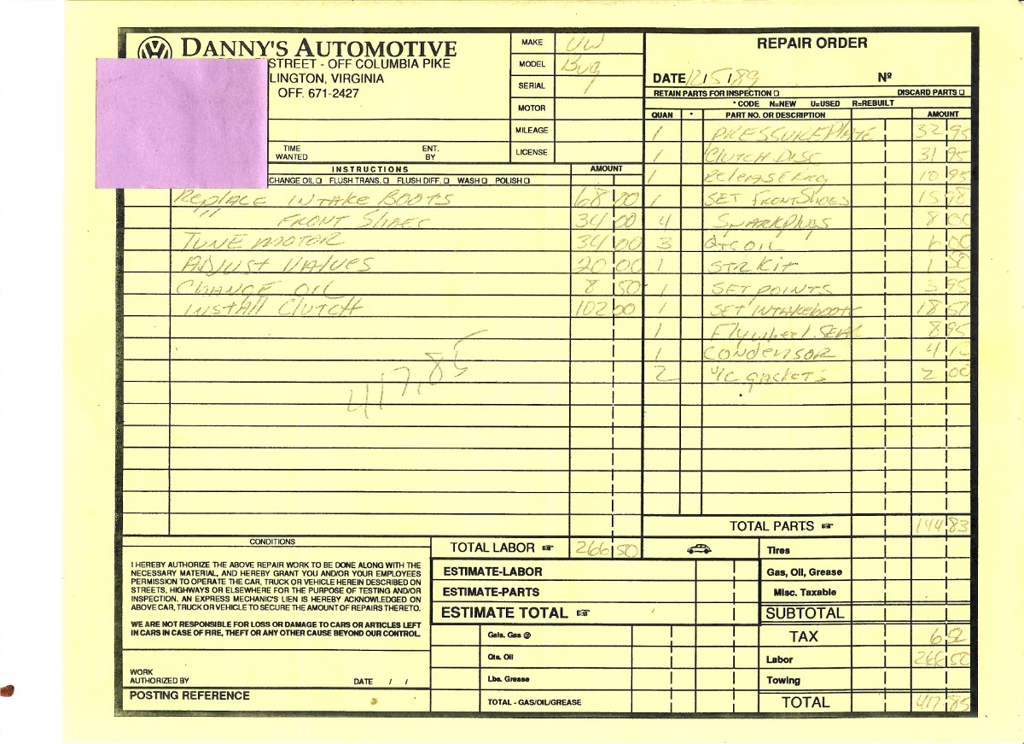 DANNY'S AUTOMOTIVE
STREET - OFF COLUMBIA PIKE
LINGTON, VIRGINIA
OFF. 671-2427
TIME WANTED
ENT. BY
MAKE VW
MODEL Bug
SERIAL
MOTOR
MILEAGE
LICENSE
REPAIR ORDER
DATE 12/5/89 Nº
RETAIN PARTS FOR INSPECTION □ DISCARD PARTS □
* CODE N=NEW U=USED R=REBUILT
QUAN * PART NO. OR DESCRIPTION AMOUNT
1 PRESSURE PLATE 32 95
1 CLUTCH DISC 31 95
1 Release Brg 10 95
1 SET FRONT SHOES 15
4 SPARK Plugs 8 00
3 QTS OIL
1 STR Kit 1 50
1 SET POINTS 3 95
1 SET INTAKE BOOTS 18 57
1 Flywheel Seal 8 95
1 CONDENSOR 4
2 V/C gaskets 2 00
TOTAL PARTS 144 83
INSTRUCTIONS AMOUNT
CHANGE OIL □ FLUSH TRANS. □ FLUSH DIFF. □ WASH □ POLISH □
Replace INTAKE BOOTS 68 00
" FRONT SHOES 34 00
TUNE MOTOR 34 00
ADJUST VALVES 20 00
CHANGE OIL 8 50
INSTALL CLUTCH 102 00
417.85
TOTAL LABOR 266 50
CONDITIONS
I HEREBY AUTHORIZE THE ABOVE REPAIR WORK TO BE DONE ALONG WITH THE
NECESSARY MATERIAL, AND HEREBY GRANT YOU AND/OR YOUR EMPLOYEES
PERMISSION TO OPERATE THE CAR, TRUCK OR VEHICLE HEREIN DESCRIBED ON
STREETS, HIGHWAYS OR ELSEWHERE FOR THE PURPOSE OF TESTING AND/OR
INSPECTION. AN EXPRESS MECHANIC'S LIEN IS HEREBY ACKNOWLEDGED ON
ABOVE CAR, TRUCK OR VEHICLE TO SECURE THE AMOUNT OF REPAIRS THERETO.
WE ARE NOT RESPONSIBLE FOR LOSS OR DAMAGE TO CARS OR ARTICLES LEFT
IN CARS IN CASE OF FIRE, THEFT OR ANY OTHER CAUSE BEYOND OUR CONTROL.
WORK
AUTHORIZED BY DATE / /
POSTING REFERENCE
ESTIMATE-LABOR
ESTIMATE-PARTS
ESTIMATE TOTAL
Gals. Gas @
Qts. Oil
Lbs. Grease
TOTAL - GAS/OIL/GREASE
Tires
Gas, Oil, Grease
Misc. Taxable
SUBTOTAL
TAX 6 52
Labor 266 50
Towing
TOTAL 417 85